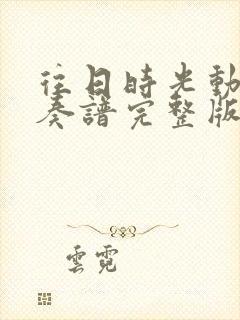 往日時光動
奏譜完整版
雲霓